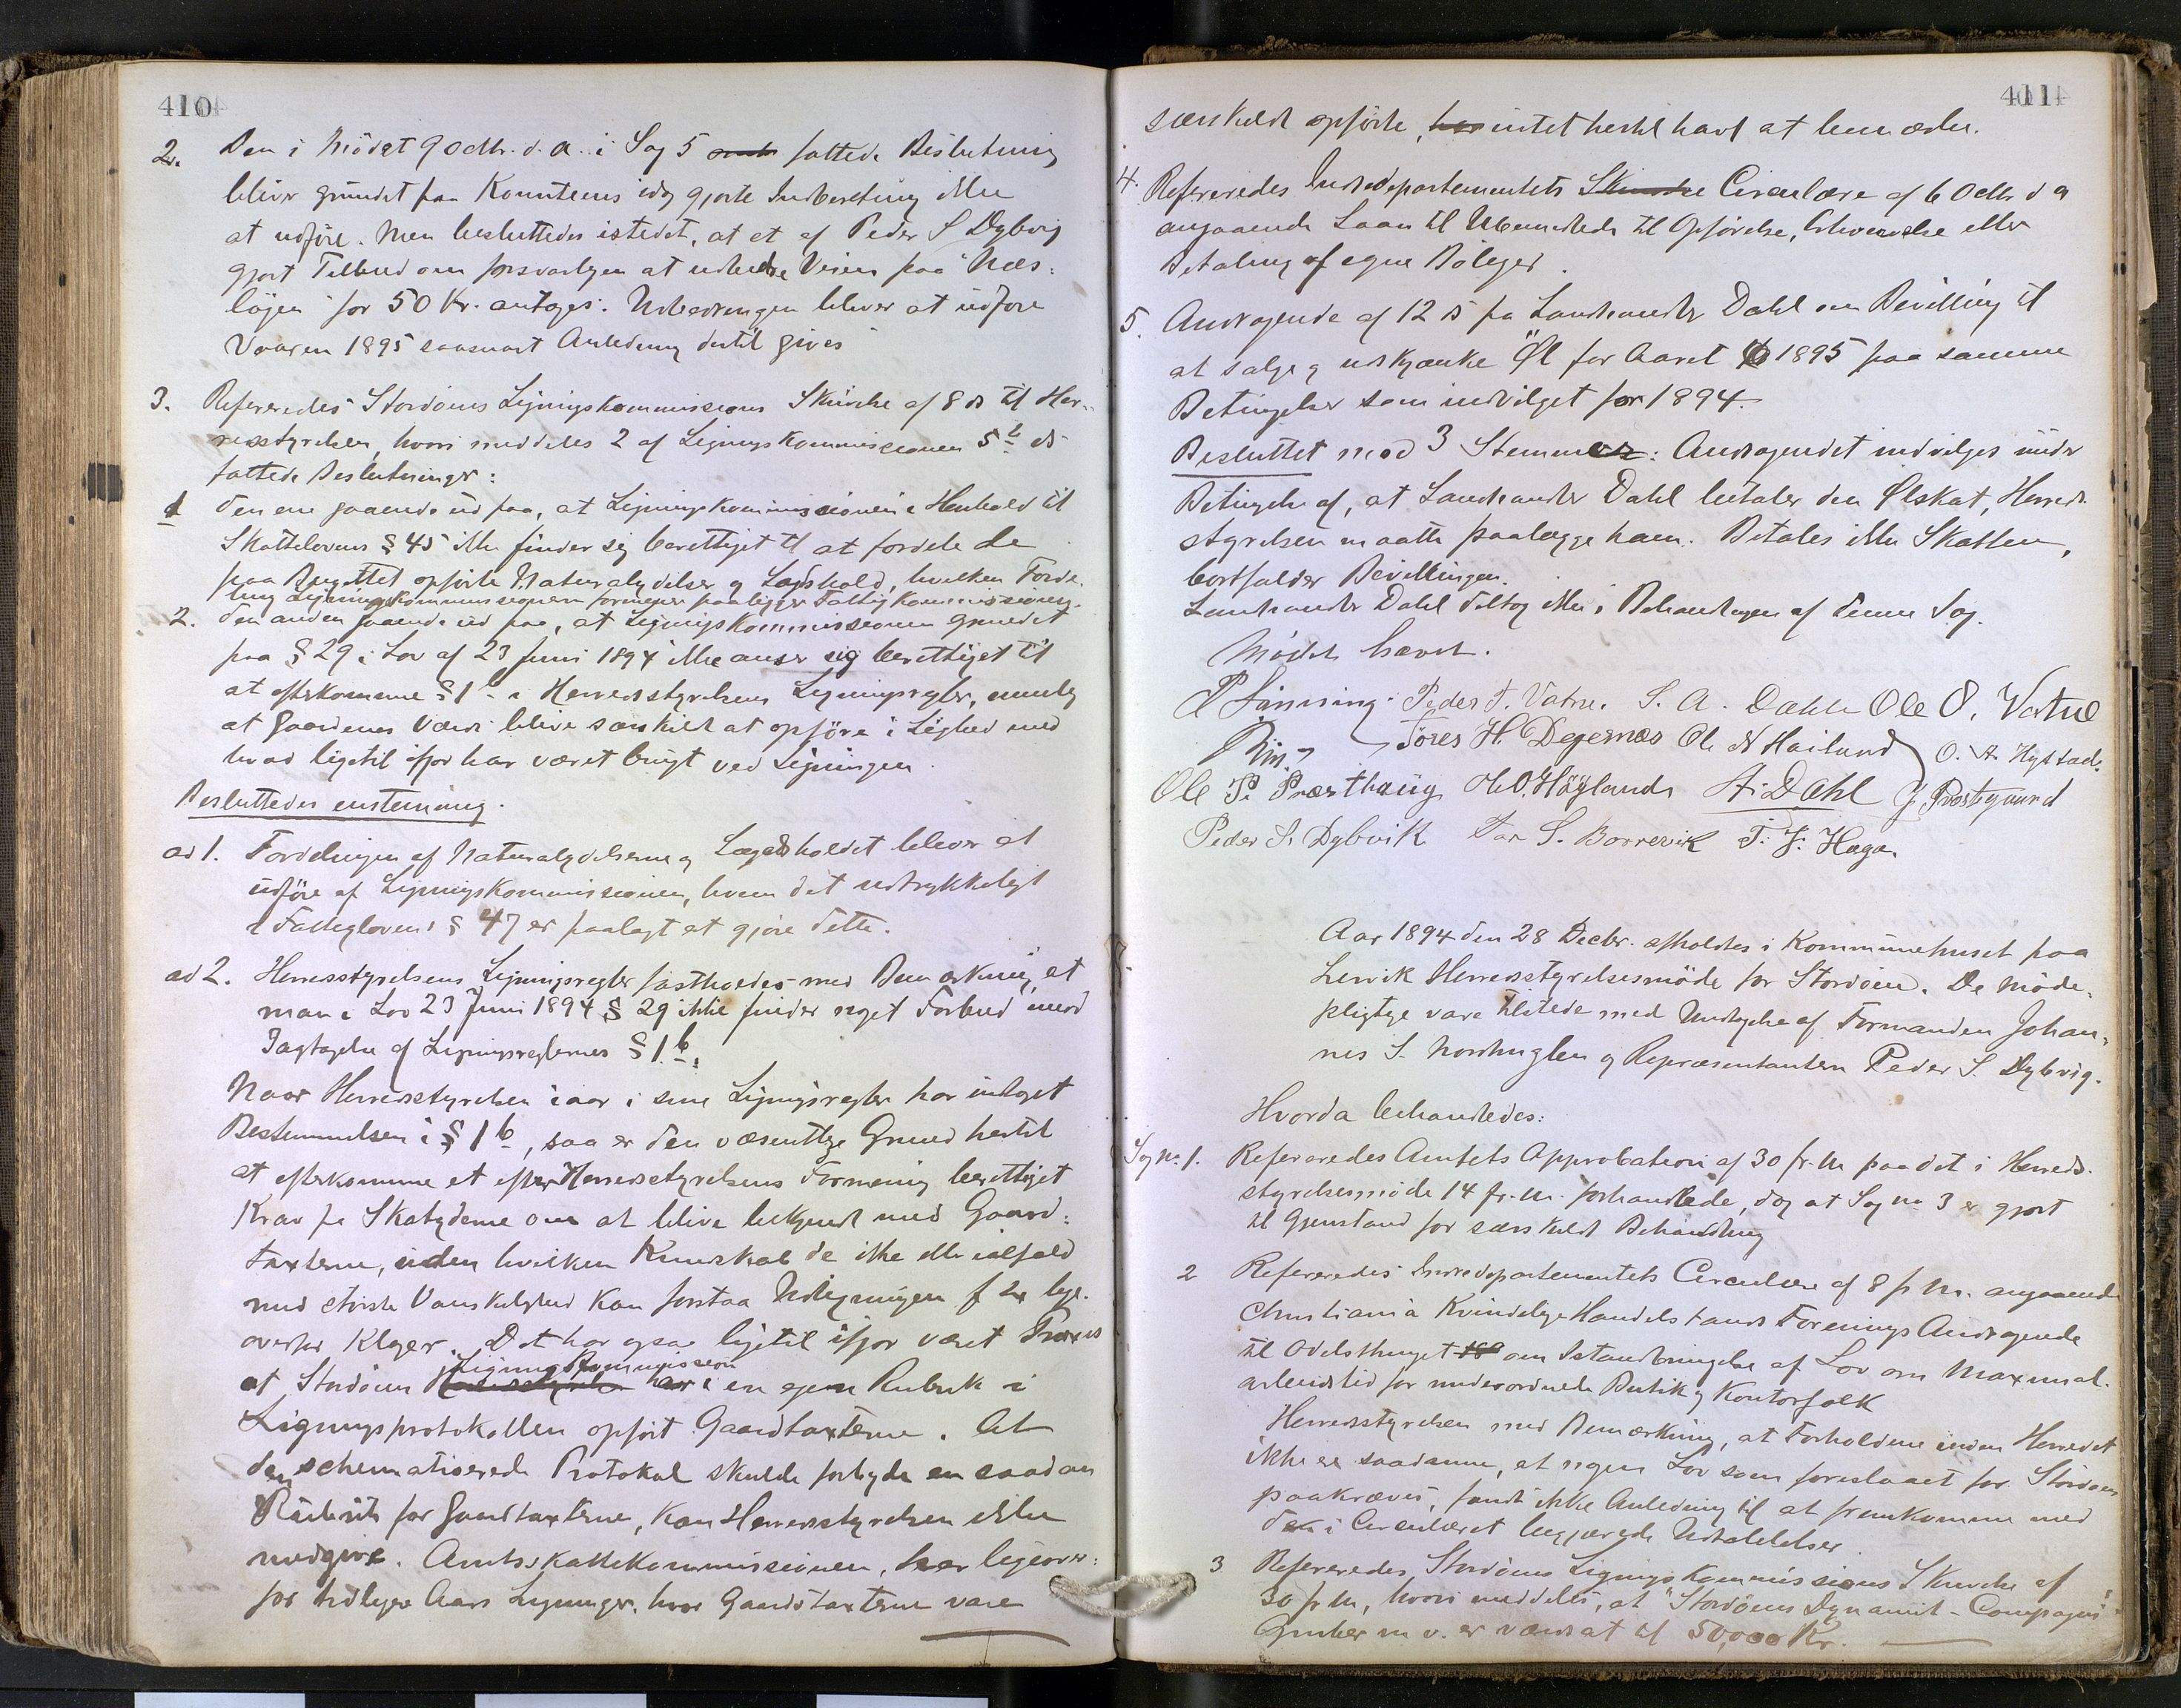 410
2. Den i Mödet 9 Octbr. d. a. i Sag 5 fattede Beslutning
bliver grundet paa Komiteens idag gjorte Indberetning ikke
at udföre. Men besluttedes istedet, at et af Peder S Dybvig
gjort Tilbud om forsvarligen at udbedre Veien paa Næs-
lögen for 50 Kr. antages. Udbedringen bliver at udföre
Vaaren 1895 saasnart Anledning dertil gives
3. Refereredes Stordöens Ligningskommissions Skrivelse af 8 ds til Her-
redsstyrelsen, hvori meddeles 2 af Ligningskommissionen 5te ds
fattede Beslutninger:
1 den ene gaaende ud paa, at Ligningskommissionen i Henhold til
Skattelovens § 45 ikke finder sig berettiget til at fordele de
paa Budgettet opförte Naturalydelser og Lægdshold, hvilken Forde-
ling Ligningskommissionen formener paaligger Fattigkommissionen.
2. den anden gaaende ud paa, at Ligningskommissionen grundet
paa § 29 i Lov af 23 Juni 1894 ikke anser sig berettiget til
at efterkomme § 1 b i Herredsstyrelsens Ligningsregler, nemlig
at Gaardenes Værdi blive særskilt at opföre i Lighed med
hvad ligetil ifjor har været brugt ved Ligningen.
Besluttedes enstemmig.
ad 1. Fordelingen af Naturalydelserne og Lægdsholdet bliver at
udföre af Ligningskommissionen, hvem det udtrykkeligt
i Fattiglovens § 47 er paalagt at gjöre dette.
ad 2. Herredsstyrelsens Ligningsregler fastholdes med Bemærkning, at
man i Lov 23 Juni 1894 § 29 ikke finder noget Forbud mod
Iagtagelse af Ligningsreglernes § 1 b.
Naar Herredsstyrelsen iaar i sine Ligningsregler har indtaget
Bestemmelsen i § 1 b, saa er den væsentlige Grund hertil
at efterkomme et efter Herredsstyrelsens Formening berettiget
Krav fra Skatyderne om at blive bekjendt med Gaard-
taxterne, uden hvilken Kundskab de ikke eller ialfald
med störste Vanskelighed kan forstaa Udligningen f Ex lige-
overfor Klager. Det har ogsaa ligetil ifjor været Praxis
at Stordöens Ligningskommission har i en egen Rubrik i
Ligningsprotokollen opfört Gaardtaxterne. At
den schematiserede Protokol skulde forbyde en saadan
Rubrik for Gaardtaxterne, kan Herredsstyrelsen ikke
medgive. Amtsskattekommissionen, har ligeover-
for tidligere Aars Ligninger, hvor Gaardstaxterne vare
411
særskildt opförte, intet hertil havt at bemærke.
4. Refereredes Indredepartementets Circulære af 6 Octbr d a
angaaende Laan til Ubemidlede til Opförelse, Erhvervelse eller
Betaling af egne Boliger.
5. Andragende af 12 ds fra Landhandler Dahl om Bevilling til
at sælge og udskjænke Øl for Aaret 1895 paa samme
Betingelser som indvilget for 1894.
Besluttet mod 3 Stemmer: Andragendet indvilges under
Betingelse af, at Landhandler Dahl betaler den Ølskat, Herreds-
styrelsen maatte paalægge ham. Betales ikke Skatten,
bortfalder Bevillingen.
Landhandler Dahl deltog ikke i Behandlingen af denne Sag.
Mödet hævet.
Peder T. Vatne. S. A. Dahle Ole O. Vatne
Tores H. Degernæs Ole N Hailand O. A. Hystad.
Ole P. Præsthaug O. O. Höylands A. Dahl J Prestgaard
Peder S. Dybvik Lar S. Borrevik T. J. Haga.
Aar 1894 den 28 Decbr. afholdtes i Kommunehuset paa
Lervik Herredsstyrelsesmöde for Stordöen. De möde-
pligtige vare tilstede med Undtagelse af Formanden Johan-
nes S. Nordhuglen og Repræsentanten Peder S. Dybvig.
Hvorda behandledes:
Sag No 1. Refereredes Amtets Approbation af 30 fr. M paa det i Herreds-
styrelsesmöde 14 fr. M. forhandlede, dog at Sag no 3 er gjort
til Gjenstand for særskildt Behandling
2 Refereredes Indredepartementets Circulære af 8 fr M. angaaende
Christiania Kvindelige Handelsstands Forenings Andragende
til Odelsthinget om Istandbringelse af Lov om Maximal-
arbeidstid for underordnede Butik og Kontorfolk
Herredsstyrelsen med Bemærkning, at Forholdene inden Herredet
ikke er saadanne, at nogen Lov som foreslaaet for Stordöen
paakræves, fandt ikke Anledning til at fremkomme med
den i Circulæret begjærede Udtalelser
3 Refereredes Stordöens Ligningskommissions Skrivelse af
30 fr M, hvori meddeles, at "Stordöens Dynamit-Compagni"
Gruber m v. er værdsat til 50,000 Kr.